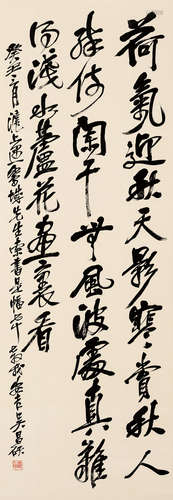 荷氣迎秋天影寒賞秋人
倚闌干無風波處真難
得淺水蘆花畫裏看
癸丑月滬上遇先生索書是幅
安吉吳昌碩